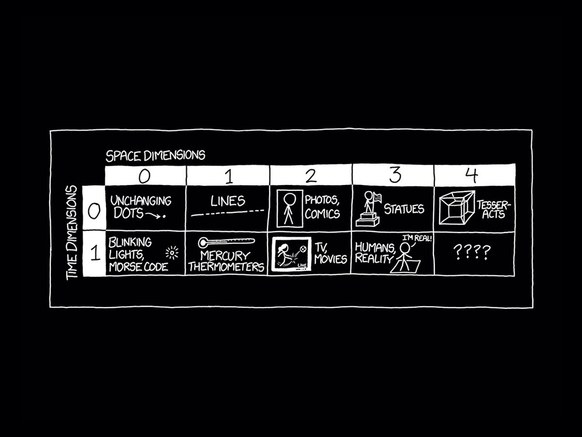 SPACE DIMENSIONS
0 1 2 3 4
TIME DIMENSIONS
0
UNCHANGING
DOTS
LINES
PHOTOS,
COMICS
STATUES
TESSER-
ACTS
1
BLINKING
LIGHTS,
MORSE CODE
MERCURY
THERMOMETERS
TV,
MOVIES
I'M REAL!
HUMANS,
REALITY
????